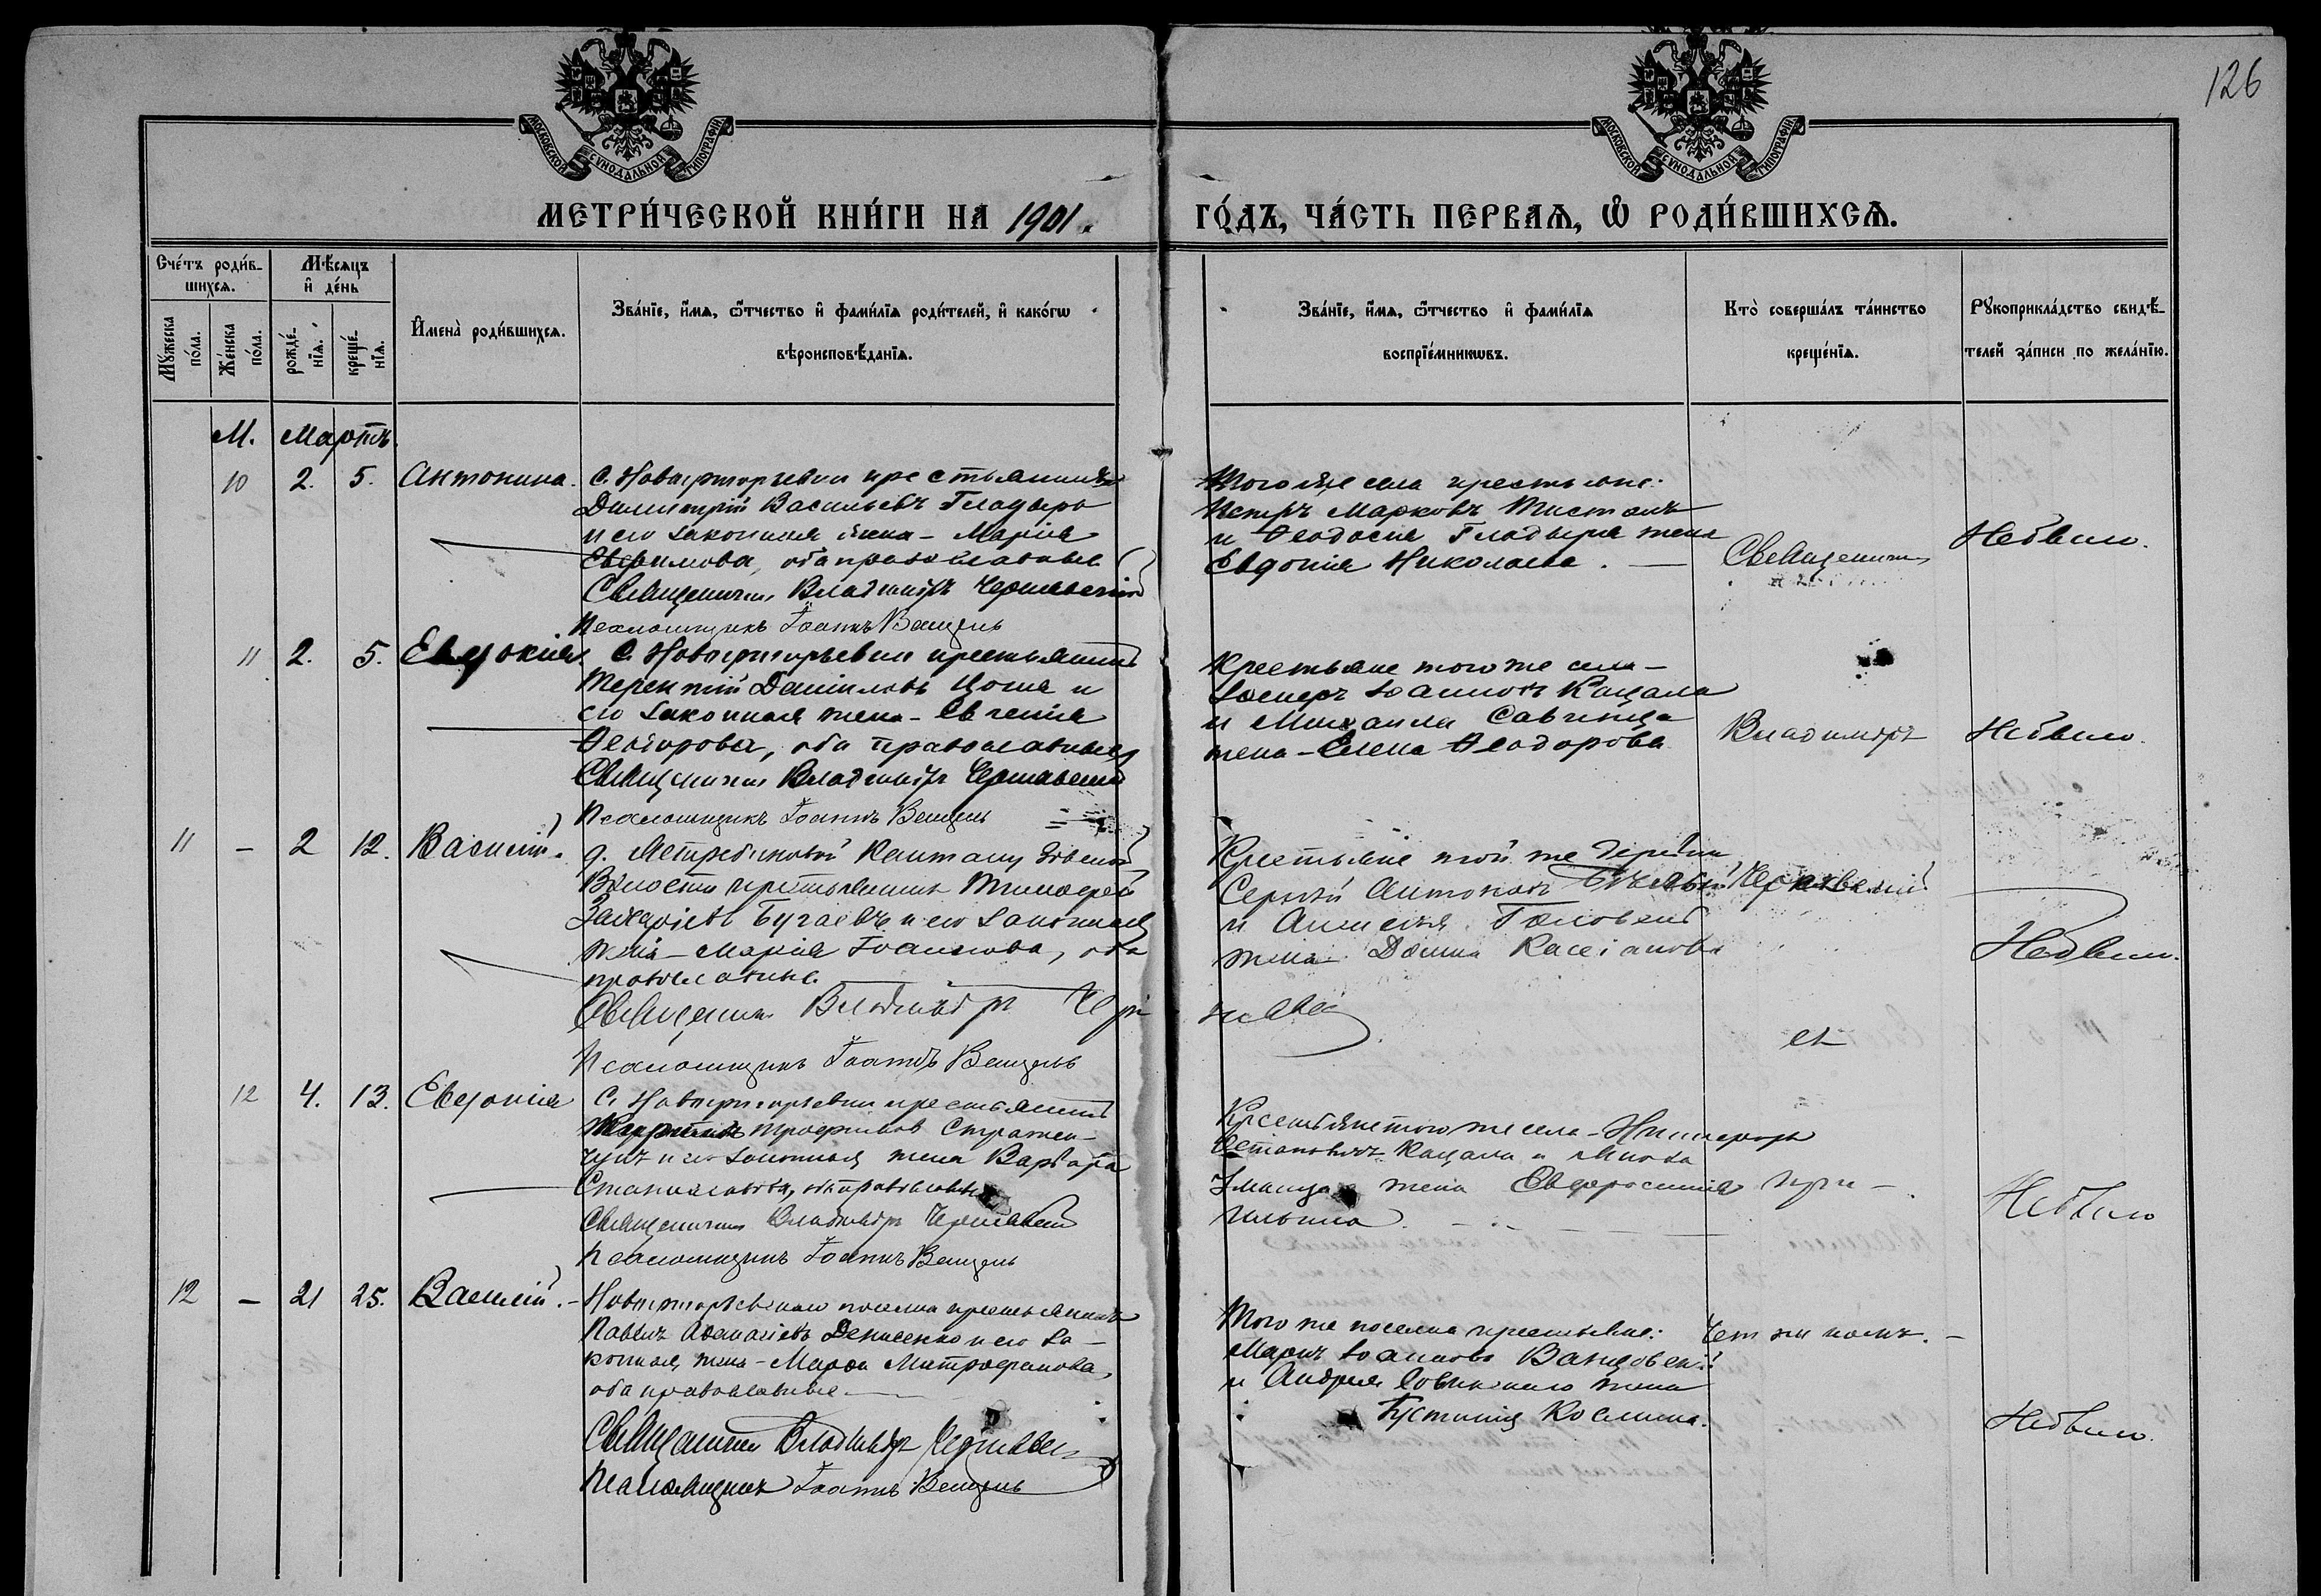 126
МОСКОВСКОЙ СУНОДАЛЬНОЙ ТИПОГРАФІИ
МОСКОВСКОЙ СУНОДАЛЬНОЙ ТИПОГРАФІИ
МЕТРИ́ЧЕСКОЙ КНИ́ГИ НА 1901.
ГО́ДЪ, ЧА́СТЬ ПЕРВАѦ, Ѡ҆ РОДИ́ВШИХСѦ.
Сче́тъ роди́в-
шихсѧ.
Мꙋ́жеска по́ла.
Же́нска по́ла.
Мѣ́сѧцъ
и҆ де́нь
рожде́-
нїѧ.
креще́-
нїѧ.
И҆мена̀ роди́вшихсѧ.
Зва́нїе, и҆́мѧ, ѻ҆́тчество и҆ фами́лїѧ роди́телей, и҆ како́гѡ
вѣроисповѣ́данїѧ.
Зва́нїе, и҆́мѧ, ѻ҆́тчество и҆ фами́лїѧ
воспрїе́мникѡвъ.
Кто̀ соверша́лъ та́инство
креще́нїѧ.
Рꙋкоприкла́дство свидѣ́-
телей за́писи по жела́нїю.
М. Мартъ.
10 2. 5. Антонина.
С. Новогригорьевки крестьянинъ
Димитрій Васильевъ Гладырь
и его законная жена - Марія
Евфимова, оба православные
Священникъ Владиміръ Чернявскій
Псаломщикъ Іоаннъ Венцель
Того же села крестьяне:
Петръ Марковъ
и Ѳеодосія Гладыря жена
Евдокія Николаева. —
Священникъ
Не было.
11 2. 5. Евдокія
С. Новогригорьевки крестьянинъ
Терентій Даніиловъ Цоша и
его законная жена - Евгенія
Ѳеодорова, оба православные
Священникъ Владиміръ Чернявскій
Псаломщикъ Іоаннъ Венцель
Крестьяне того же села -
Іоанновъ Кацала
и Михаила Савчица
жена - Елена Ѳеодорова
Владиміръ
Не было.
11 - 2 12. Василій.
д.
Волости крестьянинъ Тимофей
Захаріевъ Бугаевъ и его законная
жена - Марія Іоаннова, оба
православные.
Священникъ Владиміръ Чер
нявскій
Псаломщикъ Іоаннъ Венцель
Крестьяне той же деревни
Сергій Антоновъ
и Алексѣя
жена Домна Кассіанова
Чернявскій
Не было.
12 4. 13. Евдокія
С. Новогригорьевки крестьянинъ
Трофимовъ
и его законная жена Варвара
оба православные
Священникъ Владиміръ Чернявскій
Псаломщикъ Іоаннъ Венцель
Крестьяне того же села - Никифоръ
Кацала и
жена Евфросинія
Ильина. —
при -
Не было
12 - 21 25. Василій. -
Новогригорьевскаго поселка крестьянинъ
Павелъ Аѳанасіевъ Денисенко и его за-
конная жена - Марѳа Митрофанова,
оба православные. —
Священникъ Владиміръ Чернявскій
Псаломщикъ Іоаннъ Венцель
Того же поселка крестьяне:
Маркъ Іоанновъ
и Андрея жена
Іустинія Косьмина.
Чет
Не было.